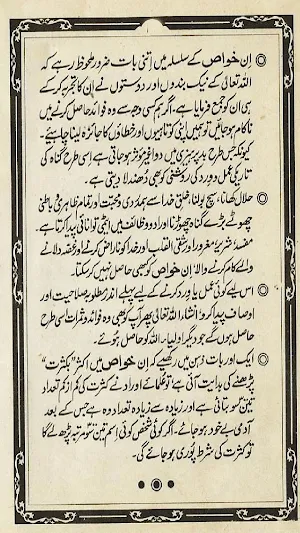 اِن خواص کے سلسلہ میں اتنی بات ضرور ملحوظ رہے کہ
اللہ تعالیٰ کے نیک بندوں اور دوستوں نے اِن کا تجربہ کر کے
ہی ان کو جمع فرمایا ہے، اگر ہم کسی وجہ سے وہ فوائد حاصل کرنے میں
ناکام ہو جائیں تو ہمیں اپنی کوتاہیوں اور خطاؤں کا جائزہ لینا چاہیئے۔
کیونکہ جس طرح بد پرہیزی میں دوا غیر مؤثر ہو جاتی ہے اِسی طرح گناہ کی
تاریکی عمل و وِرد کی روشنی کو بھی دُھندلا دیتی ہے۔
حلال کھانا، سچ بولنا، خلقِ خدا سے ہمدردی و محبت اور تمام ظاہری و باطنی
چھوٹے بڑے گناہ چھوڑنا اوراد و وظائف میں ایٹمی توانائی پیدا کرتا ہے۔
مفسد، شریر، مغرور اور شقی القلب اور خدا کو ناراض کرنے اور غصہ دلانے
والے کام کرنے والا، اِن خواص کو کبھی حاصل نہیں کر سکتا۔
اس لیے کوئی عمل یا وِرد کرنے کے لیے پہلے اپنے اندر مطلوبہ صلاحیت اور
اوصاف پیدا کرو، انشاء اللہ تعالیٰ پھر آپ کو بھی وہ فوائد و ثمرات اسی طرح
حاصل ہوں گے جو دیگر اولیاء اللہ کو حاصل ہوئے۔
ایک اور بات ذہن میں رکھیے کہ اِن خواص میں اکثر ”بکثرت“
پڑھنے کی ہدایت آئی ہے تو علمائے اوراد نے کثرت کی کم از کم تعداد
تین سو بتائی ہے اور زیادہ سے زیادہ تعداد وہ ہے جس کے بعد
آدمی بے خود ہو جائے۔ اگر کوئی شخص کوئی اسم تین سو مرتبہ پڑھ لے گا
تو کثرت کی شرط پوری ہو جائے گی۔